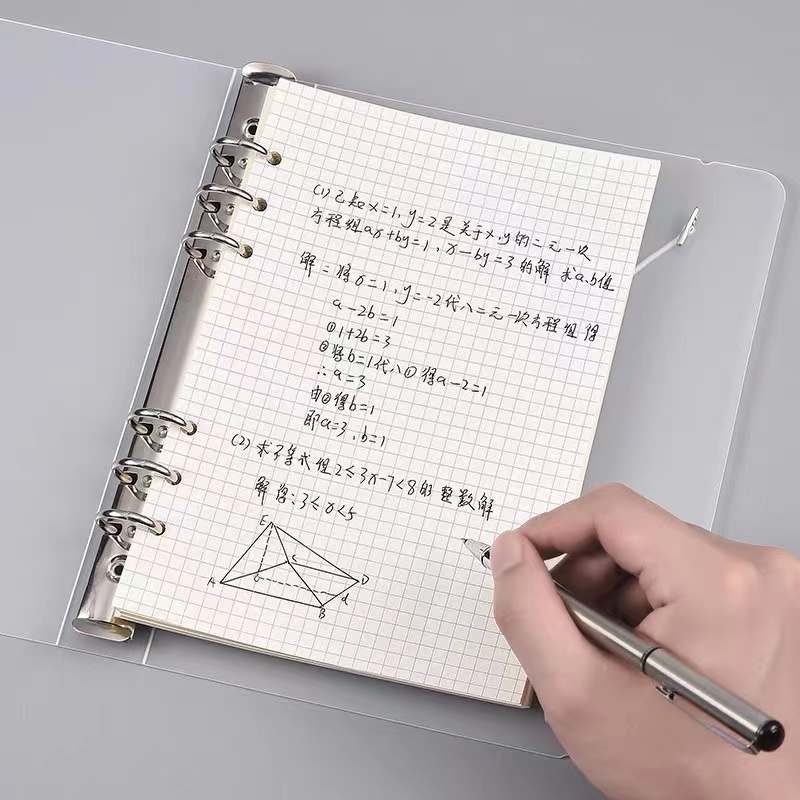 (1) 已知x=1, y=2是关于x,y的二元一次
方程组ax+by=1, x-by=3的解 求a.b值
解: 将x=1, y=-2代入二元一次方程组得
a-2b=1
①1+2b=3
②将b=1代入①得a-2=1
∴a=3
由②得b=1
即a=3, b=1
(2) 求不等式组2≤3x-7<8的整数解
解得: 3≤x<5
E
C
A
D
d
B